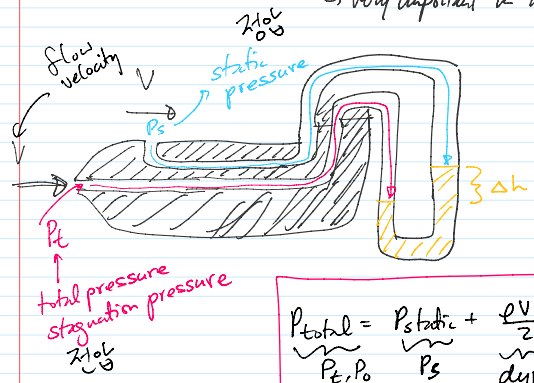 very important
정압
flow
velocity
V
static
pressure
Ps
V
Δh
Pt
total pressure
stagnation pressure
전압
Ptotal = Pstatic + ρV
2
Pt, Po Ps